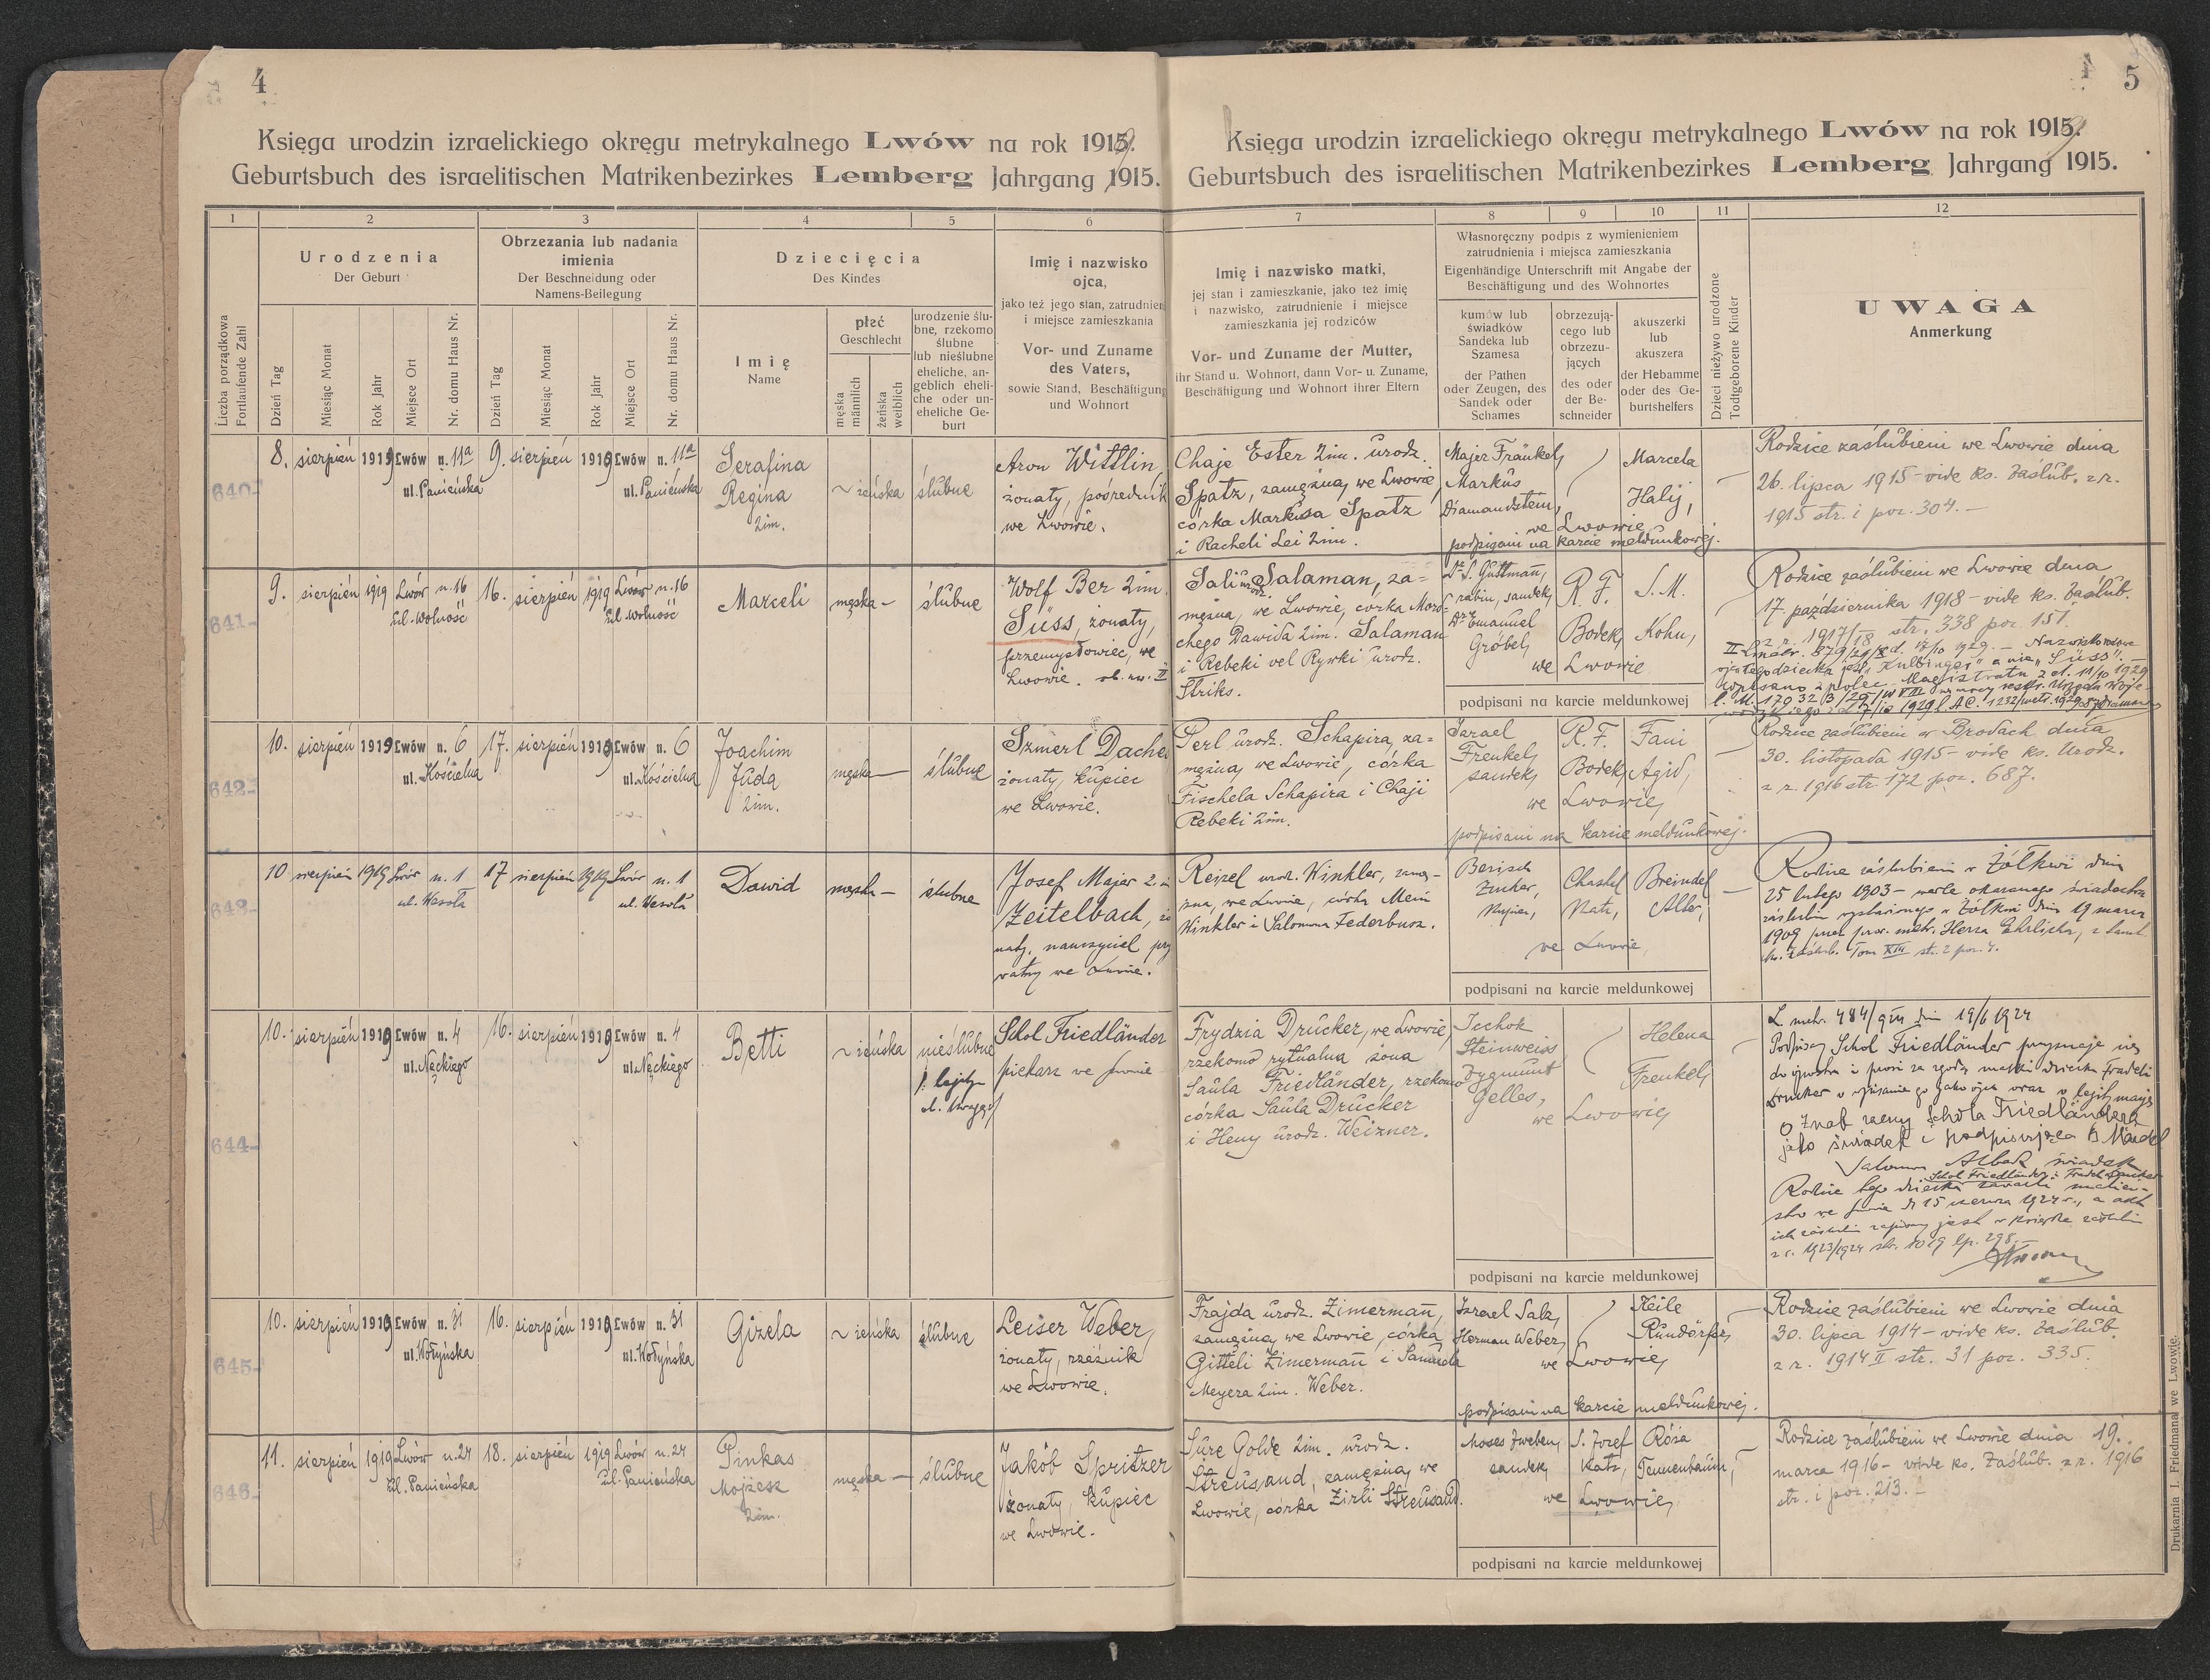 4
Księga urodzin izraelickiego okręgu metrykalnego Lwów na rok 1919.
Geburtsbuch des israelitischen Matrikenbezirkes Lemberg Jahrgang 1915.
1 2 3 4 5 6
Liczba porządkowa
Fortlaufende Zahl
Urodzenia
Der Geburt
Dzień Tag
Miesiąc Monat
Rok Jahr
Miejsce Ort
Nr. domu Haus Nr.
Obrzezania lub nadania
imienia
Der Beschneidung oder
Namens-Beilegung
Dzień Tag
Miesiąc Monat
Rok Jahr
Miejsce Ort
Nr. domu Haus Nr.
Dziecięcia
Des Kindes
Imię
Name
płeć
Geschlecht
męska
männlich
żeńska
weiblich
urodzenie ślu-
bne, rzekomo
ślubne
lub nieślubne
eheliche, an-
geblich eheli-
che oder un-
eheliche Ge-
burt
Imię i nazwisko
ojca,
jako też jego stan, zatrudnien
i miejsce zamieszkania
Vor- und Zuname
des Vaters,
sowie Stand, Beschäftigung
und Wohnort
640
8. sierpień 1919 Lwów n. 11a
ul. Panieńska
9. sierpień 1919 Lwów n. 11a
ul. Panieńska
Serafina
Regina
2im.
żeńska
ślubne
Aron Wittlin
żonaty, pośrednik
we Lwowie.
641
9. sierpień 1919 Lwów n. 16
ul. Wolność
16. sierpień 1919 Lwów n. 16
ul. Wolność
Marceli
męska -
ślubne
Wolf Ber 2im.
Süss, żonaty,
przemysłowiec, we
Lwowie.
642
10. sierpień 1919 Lwów n. 6
ul. Kościelna
17. sierpień 1919 Lwów n. 6
ul. Kościelna
Joachim
Juda
2im.
męska —
ślubne
Szmerl Dache
żonaty, kupiec
we Lwowie.
643
10 sierpień 1919 Lwów n. 1
ul. Wesoła
17 sierpień 1919 Lwów n. 1
ul. Wesoła
Dawid
męska -
ślubne
Josef Majer 2im
Zeitelbach, żo
naty, nauczyciel pry
watny we Lwowie.
644
10. sierpień 1919 Lwów n. 4
ul. Nęckiego
16. sierpień 1919 Lwów n. 4
ul. Nęckiego
Betti
żeńska
nieślubne
Schol Friedländer
piekarz we Lwowie
645
10. sierpień 1919 Lwów n. 31
ul. Wołyńska
16. sierpień 1919 Lwów n. 31
ul. Wołyńska
Gizela
żeńska
ślubne
Leiser Weber,
żonaty, rzeźnik
we Lwowie.
646
11. sierpień 1919 Lwów n. 24
ul. Panieńska
18. sierpień 1919 Lwów n. 24
ul. Panieńska
Pinkas
Mojżesz
2im.
męska —
ślubne
Jakób Spritzer
żonaty, kupiec
we Lwowie.
5
Księga urodzin izraelickiego okręgu metrykalnego Lwów na rok 1919.
Geburtsbuch des israelitischen Matrikenbezirkes Lemberg Jahrgang 1915.
7 8 9 10 11 12
Imię i nazwisko matki,
jej stan i zamieszkanie, jako też imię
i nazwisko, zatrudnienie i miejsce
zamieszkania jej rodziców
Vor- und Zuname der Mutter,
ihr Stand u. Wohnort, dann Vor- u. Zuname,
Beschäftigung und Wohnort ihrer Eltern
Własnoręczny podpis z wymienieniem
zatrudnienia i miejsca zamieszkania
Eigenhändige Unterschrift mit Angabe der
Beschäftigung und des Wohnortes
kumów lub
świadków
Sandeka lub
Szamesa
der Pathen
oder Zeugen, des
Sandek oder
Schames
obrzezują-
cego lub
obrzezu-
jących
des oder
der Be-
schneider
akuszerki
lub
akuszera
der Hebamme
oder des Ge-
burtshelfers
Dzieci nieżywo urodzone
Todtgeborene Kinder
UWAGA
Anmerkung
Chaje Ester 2im. urodz.
Spatz, zamężna, we Lwowie,
córka Markusa Spatz
i Racheli Lei 2im.
Majer Fränkel,
Markus
Diamandstein,
we Lwowie
podpisani na karcie meldunkowej.
Marcela
Halij,
Rodzice zaślubieni we Lwowie dnia
26. lipca 1915 - vide ks. zaślub. z r.
1915 str. i poz. 304. -
Sali urodz. Salaman, za-
mężna, we Lwowie, córka Mord-
chego Dawida 2im. Salaman
i Rebeki vel Rywki urodz.
Striks.
Dr. S. Guttmann,
rabin, sandek,
Dr. Emanuel
Gröbel,
R. F.
Bodek,
S. M.
Kohn,
we Lwowie
podpisani na karcie meldunkowej
Rodzice zaślubieni we Lwowie dnia
17. października 1918 - vide ks. zaślub.
z r. 1917/18 str. 338 poz. 151.
Perl urodz. Schapira, za-
mężna, we Lwowie, córka
Fischela Schapira i Chaji
Rebeki 2im.
Israel
Frenkel,
sandek,
R. F.
Bodek,
Fani
Agid,
we Lwowie,
podpisani na karcie meldunkowej.
Rodzice zaślubieni w Brodach dnia
30. listopada 1915 - vide ks. Urodz.
z r. 1916 str. 172 poz. 687.
Reizel urodz. Winkler, zamę-
żna, we Lwowie, córka
Winkler i Salomona Federbusz.
Berisch
Zucker,
Chaskel
Katz,
Breindel
Alter,
we Lwowie,
podpisani na karcie meldunkowej
Rodzice zaślubieni w Żółkwi dnia
25 lutego 1903 - wedle okazanego świadectwa
zaślubin wystawionego w Żółkwi dnia 19 marca
1909 przez metr. Hersza Ehrlicha,
ks. zaślub. Tom XIII str. 2 poz. 4.
Frydzia Drucker, we Lwowie,
rzekomo rytualna żona
Saula Friedländer, rzekomo
córka Saula Drucker
i Heny urodz. Weizner.
Icchok
Steinweiss
Zygmunt
Gelles,
we Lwowie,
Helena
Frenkel,
podpisani na karcie meldunkowej
L. metr. 484/ dnia 19/6 1924
Podpisany Schol Friedländer przyznaje się
do ojcostwa i prosi za zgodą matki dziecka Fradel
Drucker o wpisanie go jako ojca oraz
Schola Friedländera
jako świadek i podpisująca
świadek
Schol Friedländer i Fradel Drucker
Rodzice tego dziecka zawarli małżeń-
stwo we Lwowie d. 15 czerwca 1924 r., a akt
ich zaślubin zapisany jest w księdze zaślubin
z r. 1923/1924 str. 1019 lp. 298.
Frajda urodz. Zimermann,
zamężna, we Lwowie, córka
Gitteli Zimermann i Samuela
Meyera 2im. Weber.
Israel Salz,
Herman Weber,
we Lwowie,
Keile
podpisani na karcie meldunkowej.
Rodzice zaślubieni we Lwowie dnia
30. lipca 1914 - vide ks. zaślub.
z r. 1914 II str. 31 poz. 335.
Sure Golde 2im. urodz.
Streusand, zamężna, we
Lwowie, córka Zirli Streusand.
Moses Zweben,
sandek,
S. Josef
Katz,
Róża
Tennenbaum,
we Lwowie,
podpisani na karcie meldunkowej
Rodzice zaślubieni we Lwowie dnia 19.
marca 1916 - vide ks. zaślub. z r. 1916
str. i poz. 213. -
Drukarnia I. Friedmana we Lwowie.